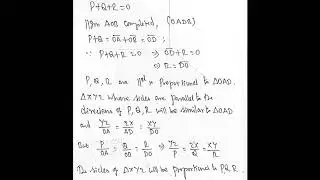 P+Q+R=0
|| gm AOB completed, (OADB)
P+Q = OA+OB = OD ;
∵ P+Q+R=0 ⇒ OD+R=0
⇒ R = DO
P, Q, R are ||el & proportional to ΔOAD.
ΔXYZ whose sides are parallel to the
directions of P, Q, R will be similar to ΔOAD
and YZ/OA = ZX/AD = XY/DO
But P/OA = Q/OB = R/DO ⇒ YZ/P = ZX/Q = XY/R
The sides of ΔXYZ will be proportional to PQR.